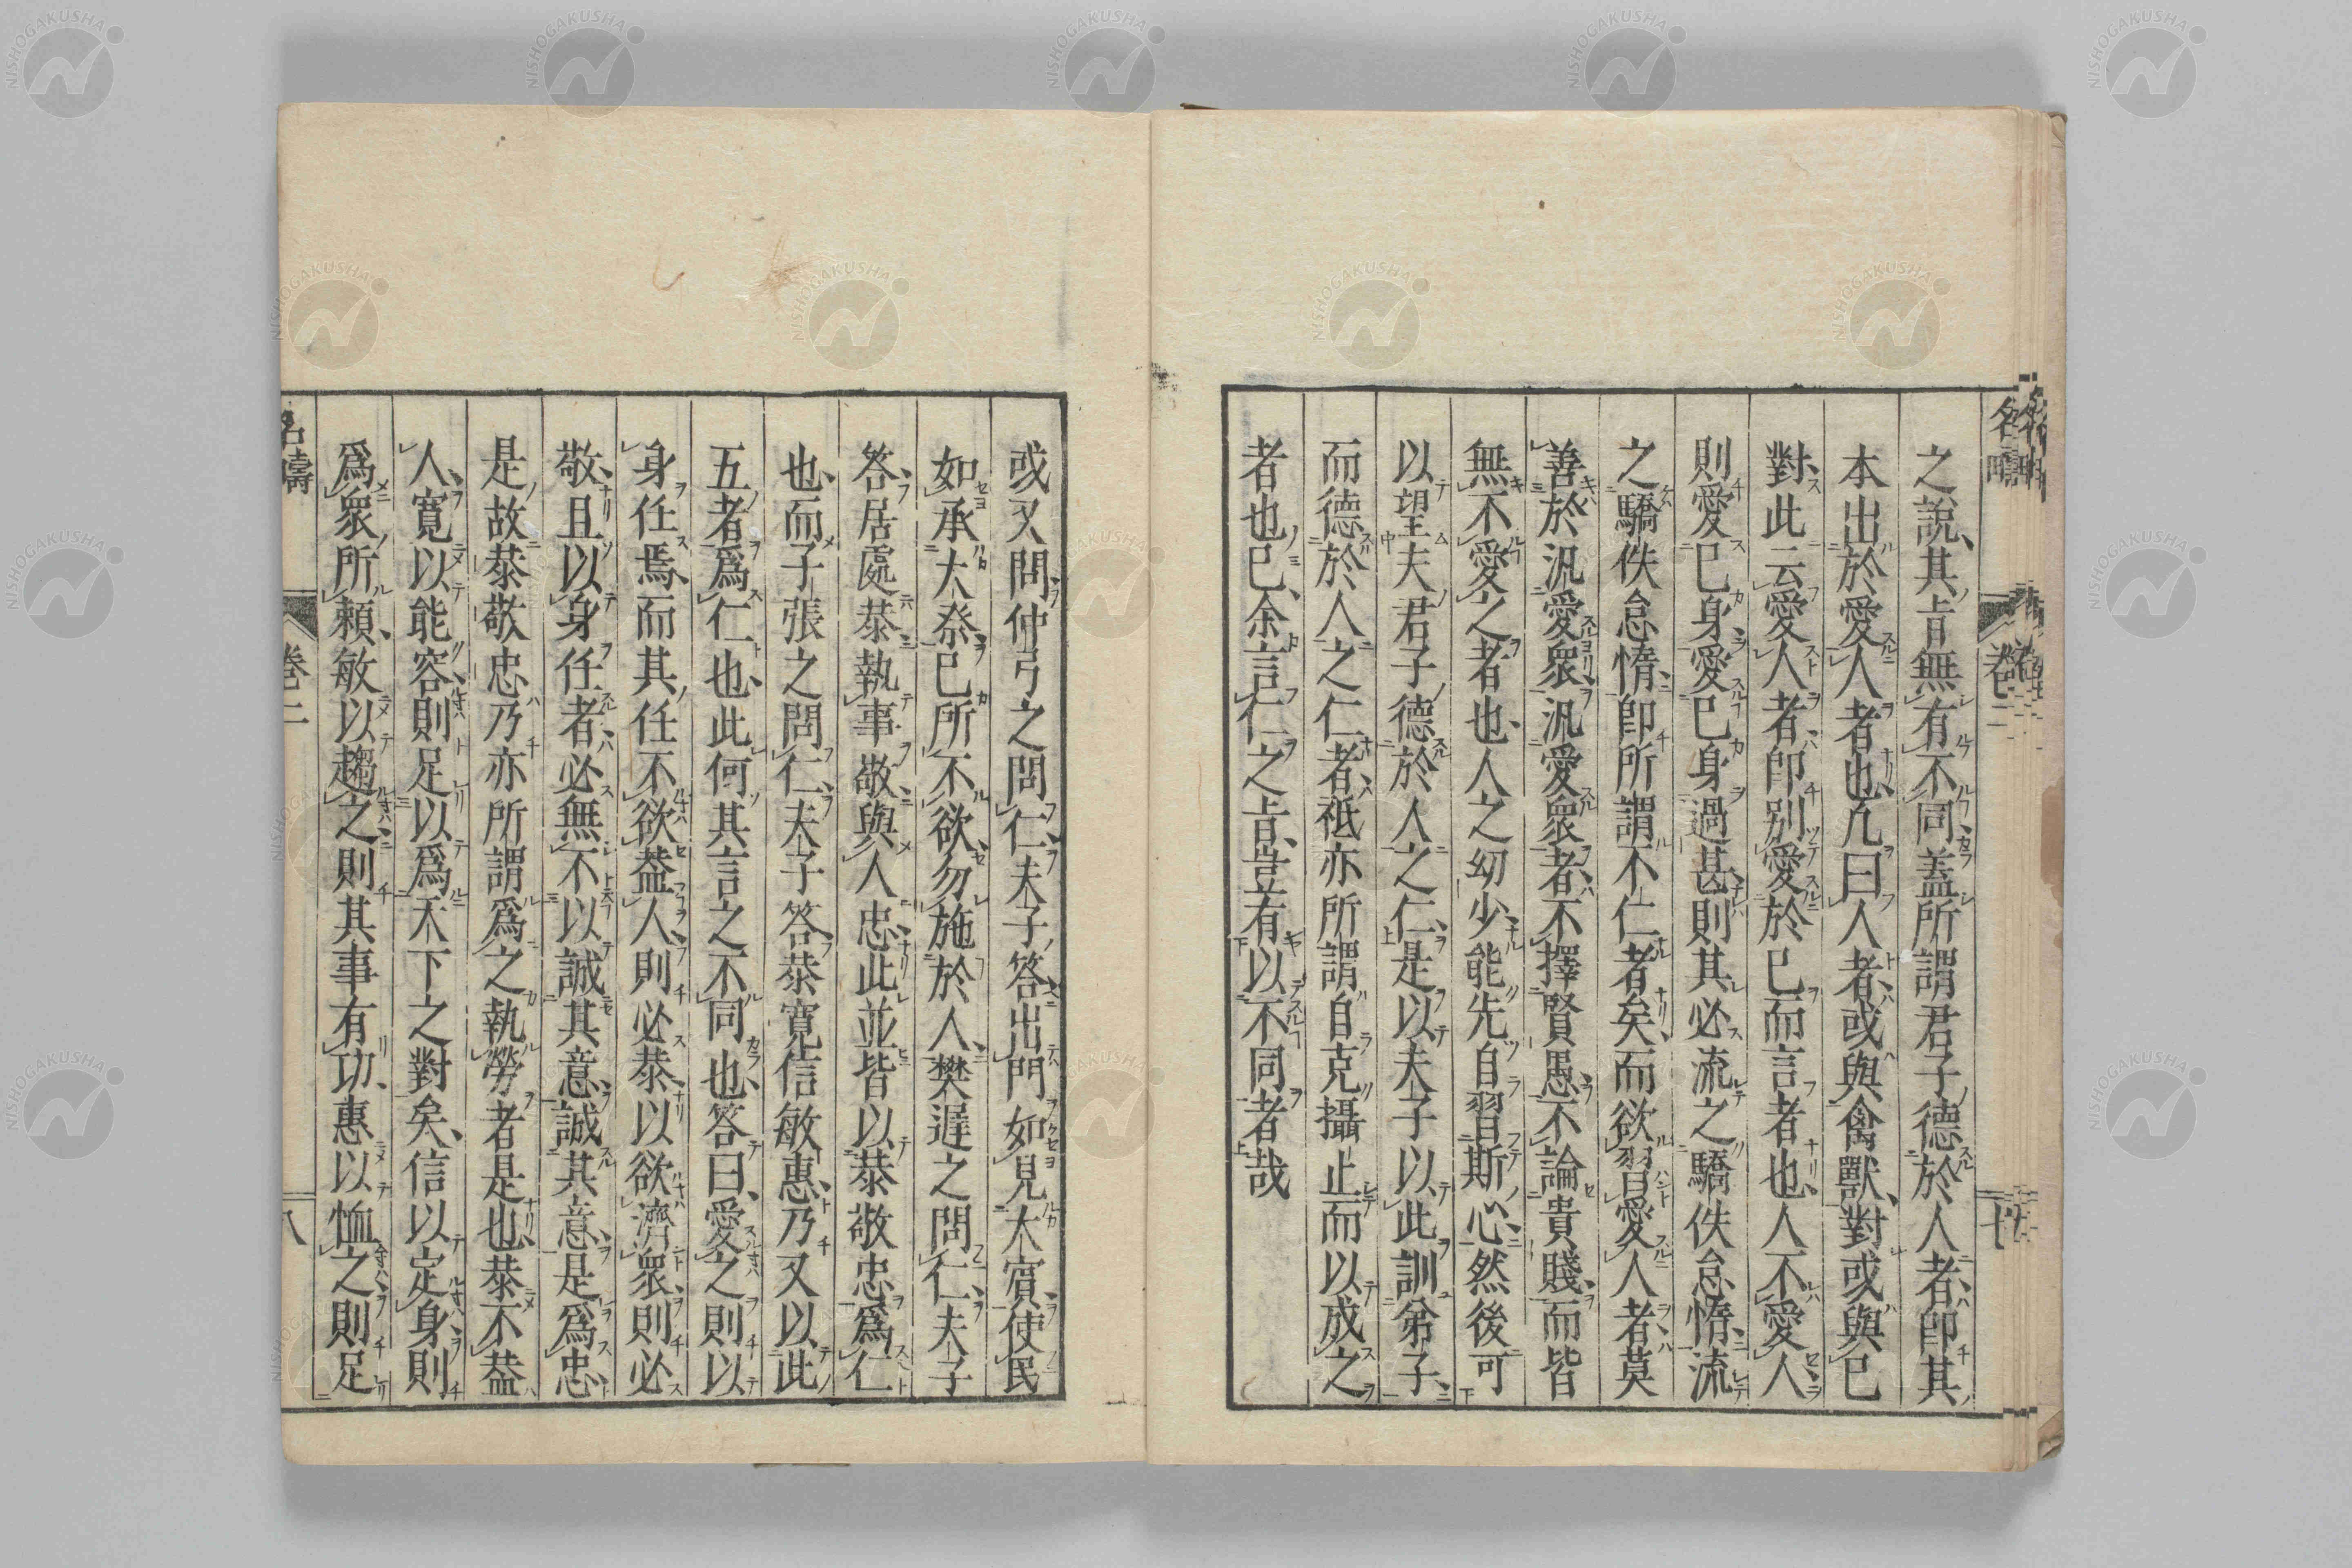 之說、其旨無有不同、蓋所謂君子德於人者、即其
本出於愛人者也、凡曰人者、或與禽獸、對或與己
對、此云愛人者、即別愛於己而言者也、人不愛人、
則愛己身、愛己身過甚、則其必流之驕佚怠惰、流
之驕佚怠惰、即所謂不仁者矣、而欲習愛人者、莫
善於汎愛衆、汎愛衆者、不擇賢愚、不論貴賤、而皆
無不愛之者也、人之幼少、能先自習斯心、然後可
以望夫君子德於人之仁、是以夫子以此訓弟子、
而德於人之仁者、祗亦所謂自克攝止而以成之
者也已、余言仁之旨、豈有以不同者哉
或又問、仲弓之問仁、夫子答出門如見大賓、使民
如承大祭、己所不欲、勿施於人、樊遲之問仁、夫子
答居處恭、執事敬、與人忠、此並皆以恭敬忠爲仁
也、而子張之問仁、夫子答、恭寬信敏惠、乃又以此
五者爲仁也、此何其言之不同也、答曰、愛之則以
身任焉、而其任不欲盡人、則必恭、以欲濟衆、則必
敬、且以身任者、必無不以誠其意、誠其意、是爲忠、
是故恭敬忠乃亦所謂爲之執勞者是也、恭不盡
人、寬以能容、則足以爲天下之對矣、信以定身、則
爲衆所賴、敏以趨之、則其事有功、惠以恤之、則足
名疇
卷二
八
名疇
卷二